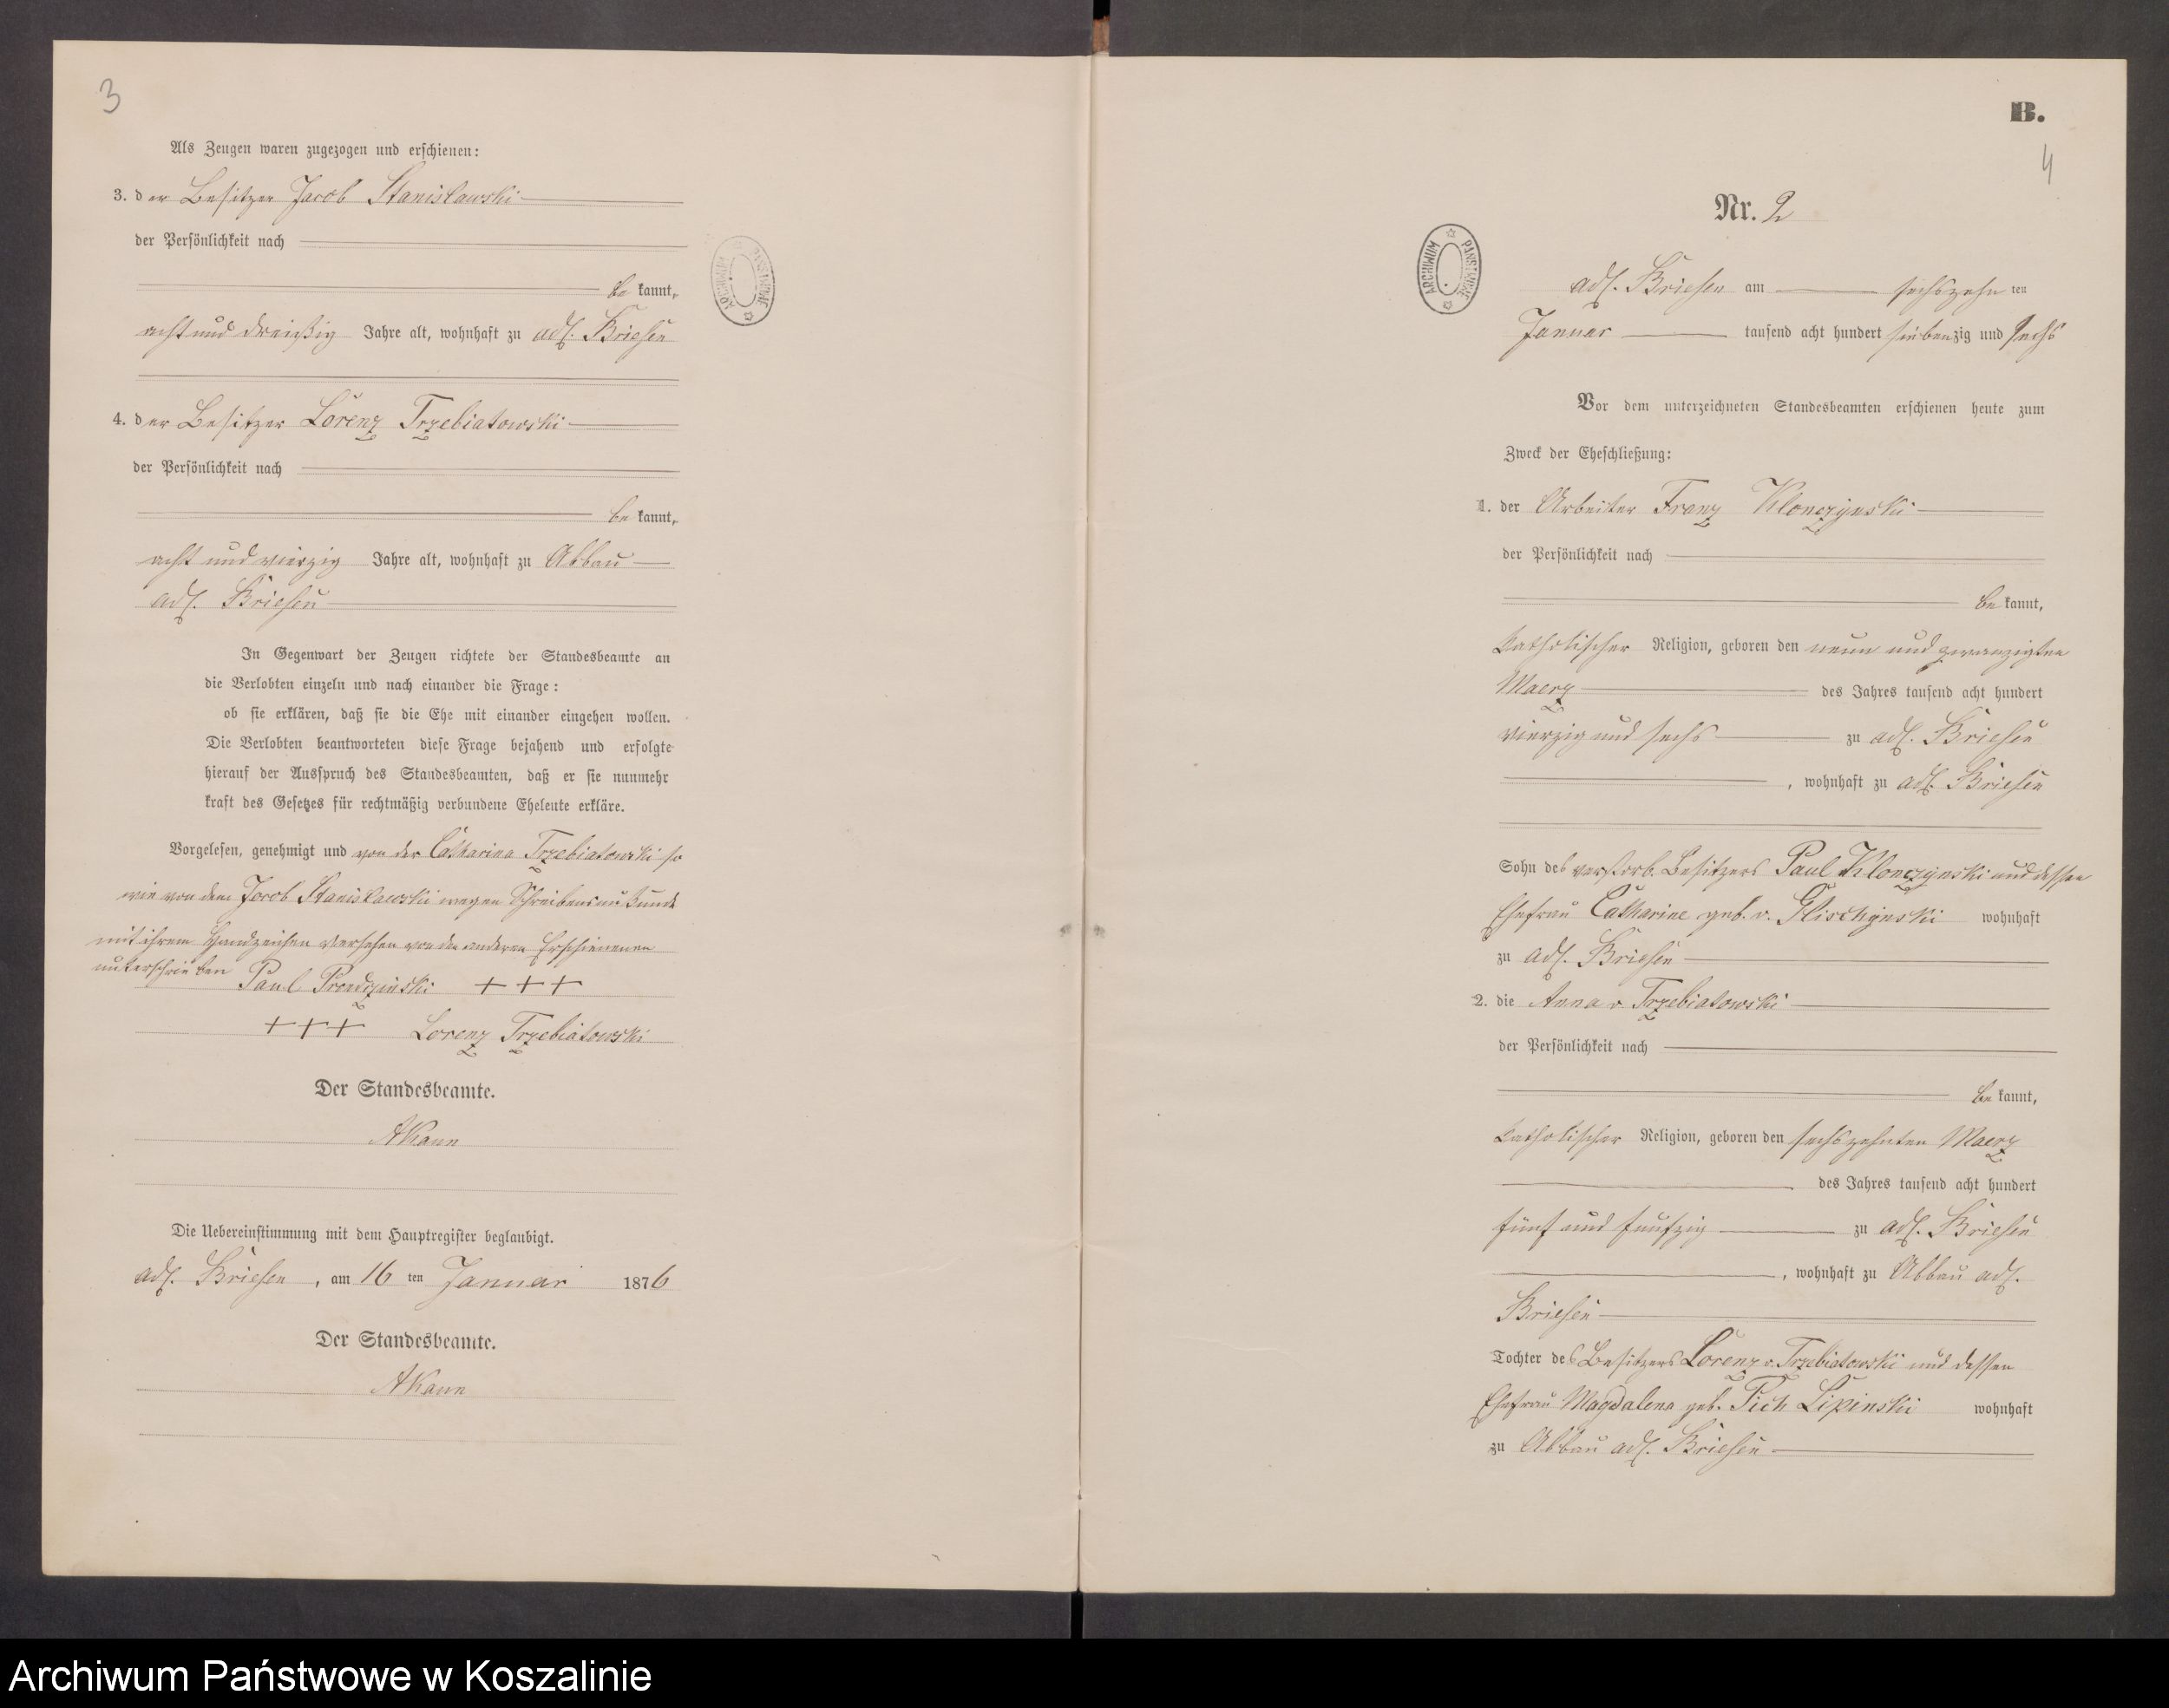 3
Als Zeugen waren zugezogen und erschienen:
3. der Besitzer Jacob Stanislawski
der Persönlichkeit nach
bekannt,
acht und dreißig Jahre alt, wohnhaft zu adl. Briesen
4. der Besitzer Lorenz Trzebiatowski
der Persönlichkeit nach
bekannt,
acht und vierzig Jahre alt, wohnhaft zu Abbau
adl. Briesen
In Gegenwart der Zeugen richtete der Standesbeamte an
die Verlobten einzeln und nach einander die Frage:
ob sie erklären, daß sie die Ehe mit einander eingehen wollen.
Die Verlobten beantworteten diese Frage bejahend und erfolgte
hierauf der Ausspruch des Standesbeamten, daß er sie nunmehr
kraft des Gesetzes für rechtmäßig verbundene Eheleute erkläre.
Vorgelesen, genehmigt und von der Catharina Trzebiatowski so
wie von dem Jacob Stanislawski wegen Schreibensunkunde
mit ihrem Handzeichen versehen von den anderen Erschienenen
unterschrieben Paul Prondzinski +++
+++ Lorenz Trzebiatowski
Der Standesbeamte.
AKann
Die Uebereinstimmung mit dem Hauptregister beglaubigt.
adl. Briesen, am 16 ten Januar 1876
Der Standesbeamte.
AKann
ARCHIWUM PAŃSTWOWE
B.
4
Nr. 2
ARCHIWUM PAŃSTWOWE
adl. Briesen am sechszehn ten
Januar tausend acht hundert siebenzig und sechs
Vor dem unterzeichneten Standesbeamten erschienen heute zum
Zweck der Eheschließung:
1. der Arbeiter Franz Klonczynski
der Persönlichkeit nach
bekannt,
katholischer Religion, geboren den neun und zwanzigten
Maerz des Jahres tausend acht hundert
vierzig und sechs zu adl. Briesen
, wohnhaft zu adl. Briesen
Sohn des verstorb. Besitzers Paul Klonczynski und dessen
Ehefrau Catharine geb. v. Glischynski wohnhaft
zu adl. Briesen
2. die Anna v Trzebiatowski
der Persönlichkeit nach
bekannt,
katholischer Religion, geboren den sechszehnten Maerz
des Jahres tausend acht hundert
fünf und funfzig zu adl. Briesen
, wohnhaft zu Abbau adl.
Briesen
Tochter des Besitzers Lorenz v. Trzebiatowski und dessen
Ehefrau Magdalena geb. Pich Lipinski wohnhaft
zu Abbau adl. Briesen
Archiwum Państwowe w Koszalinie